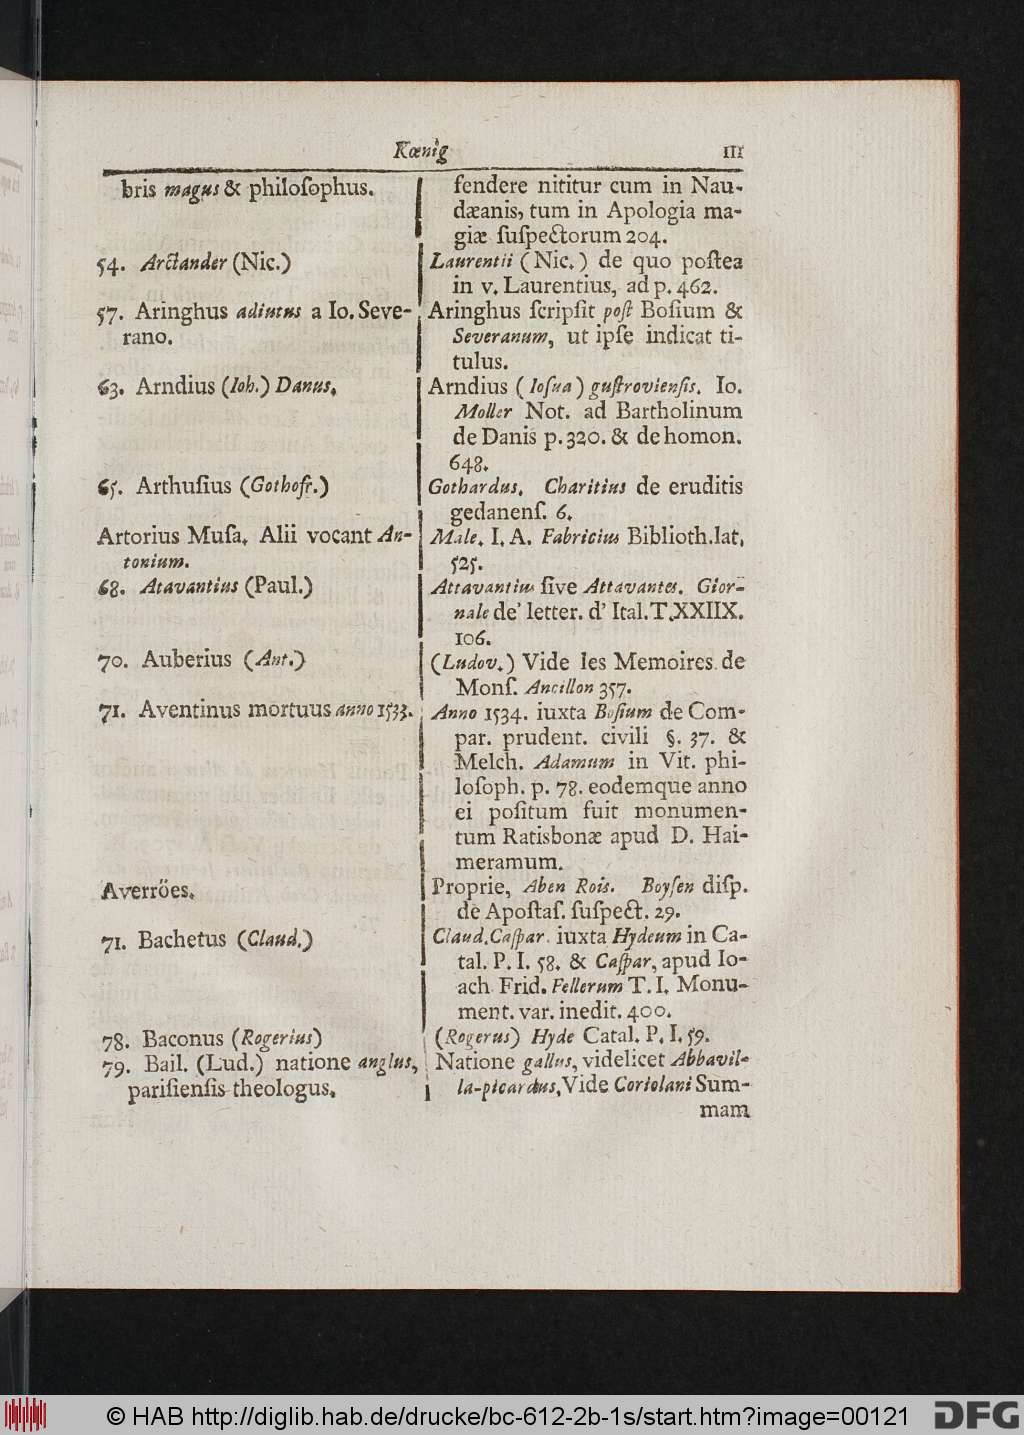 Kœnig 111
bris magus & philoſophus.
fendere nititur cum in Nau-
dæanis, tum in Apologia ma-
giæ ſuſpectorum 204.
54. Arctander (Nic.)
Laurentii (Nic.) de quo poſtea
in v. Laurentius, ad p. 462.
57. Aringhus adiutus a Io. Seve-
rano.
Aringhus ſcripſit poſt Boſium &
Severanum, ut ipſe indicat ti-
tulus.
63. Arndius (Ioh.) Danus.
Arndius (Ioſua) guſtrovienſis. Io.
Moller Not. ad Bartholinum
de Danis p. 320. & de homon.
648.
65. Arthuſius (Gothofr.)
Gothardus. Charitius de eruditis
gedanenſ. 6.
Artorius Muſa. Alii vocant An-
tonium.
Male. I. A. Fabricius Biblioth. lat.
525.
68. Atavantius (Paul.)
Attavantius ſive Attavantes. Gior-
nale de' letter. d' Ital. T. XXIIX.
106.
70. Auberius (Ant.)
(Ludov.) Vide les Memoires de
Monſ. Ancillon 357.
71. Aventinus mortuus anno 1533.
Anno 1534. iuxta Boſium de Com-
par. prudent. civili §. 37. &
Melch. Adamum in Vit. phi-
loſoph. p. 78. eodemque anno
ei poſitum fuit monumen-
tum Ratisbonæ apud D. Hai-
meramum.
Averröes.
Proprie, Aben Rois. Boyſen diſp.
de Apoſtaſ. ſuſpect. 29.
71. Bachetus (Claud.)
Claud. Caſpar. iuxta Hydeum in Ca-
tal. P. I. 58. & Caſpar, apud Io-
ach. Frid. Fellerum T. I. Monu-
ment. var. inedit. 400.
78. Baconus (Rogerius)
(Rogerus) Hyde Catal. P. I. 59.
79. Bail. (Lud.) natione anglus,
pariſienſis theologus.
Natione gallus, videlicet Abbavil-
la-picardus, Vide Coriolani Sum-
mam
© HAB http://diglib.hab.de/drucke/bc-612-2b-1s/start.htm?image=00121
DFG